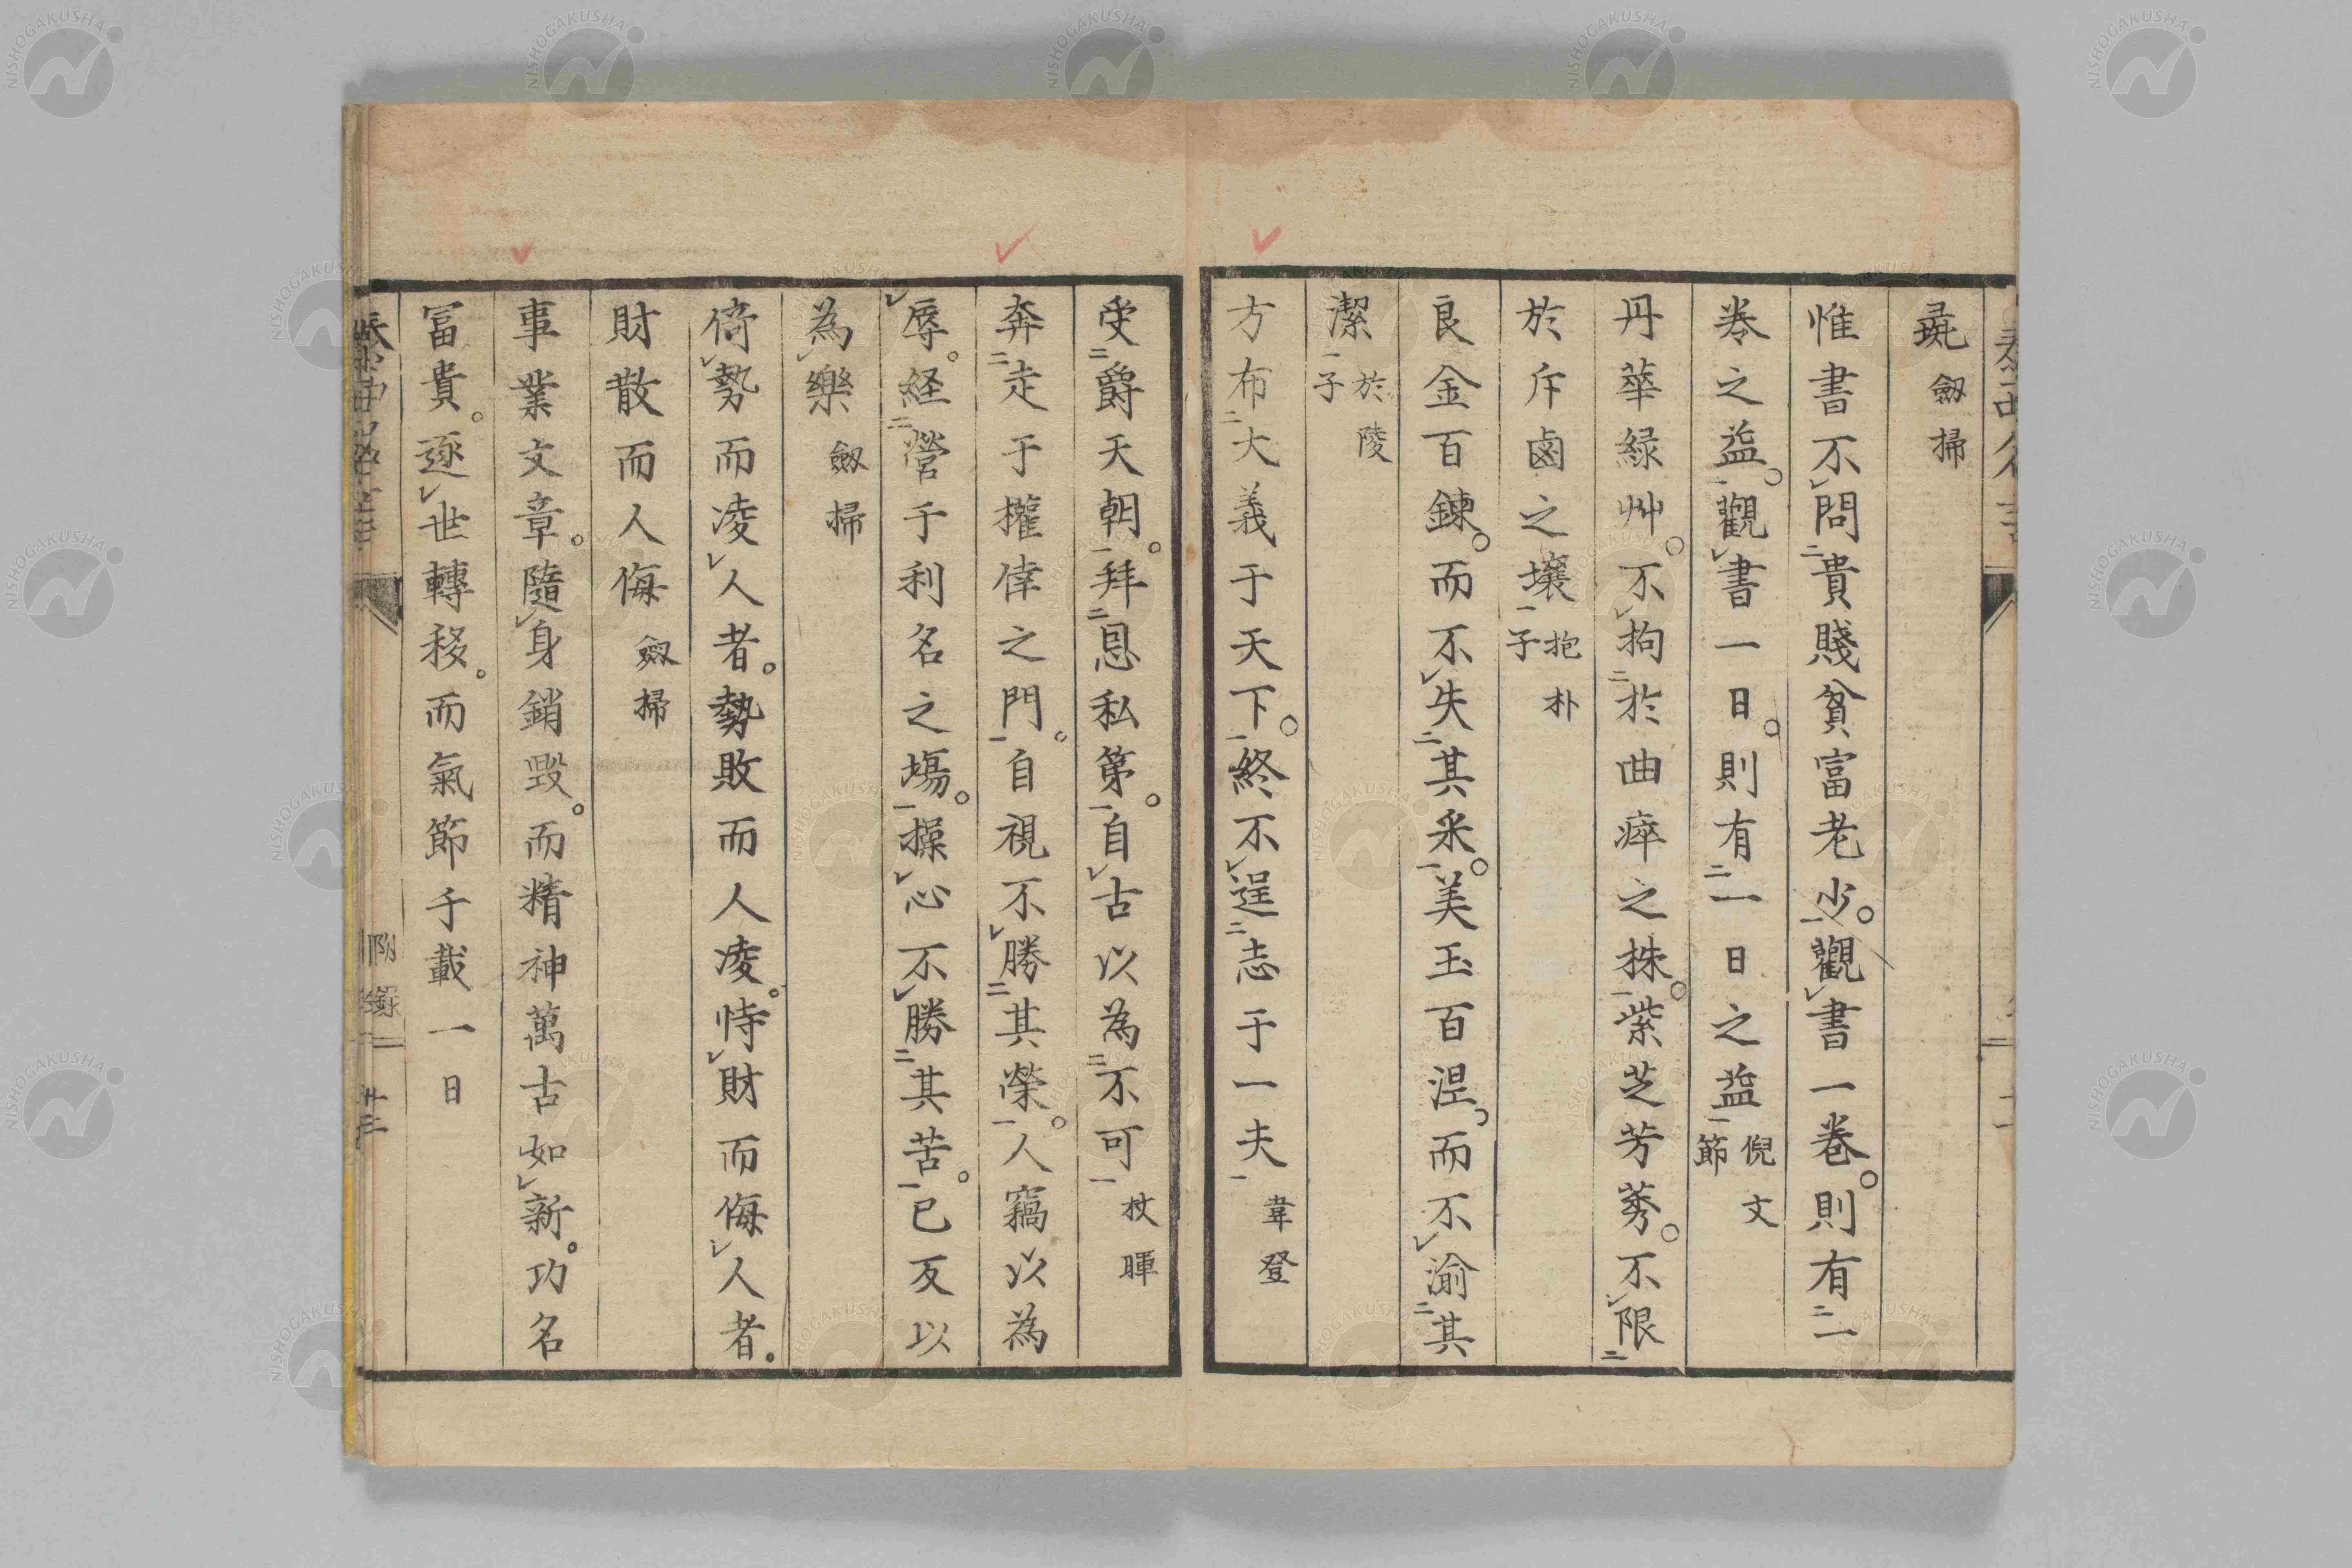 毳 劔掃
惟書不問貴賤貧富老少。觀書一卷。則有一
卷之益。觀書一日。則有一日之益 倪文節
丹華緑艸。不拘於曲瘁之株。紫芝芳莠。不限
於斥鹵之壤 抱朴子
良金百鍊。而不失其采。美玉百涅。而不渝其
潔 於陵子
方布大義于天下。終不逞志于一夫 韋登
受爵天朝。拜恩私第。自古以為不可 杖暉
奔走于權倖之門。自視不勝其榮。人竊以為
辱。経營于利名之塲。操心不勝其苦。已反以
為樂 劔掃
倚勢而凌人者。勢敗而人凌。恃財而侮人者。
財散而人侮 劔掃
事業文章。隨身銷毀。而精神萬古如新。功名
冨貴。逐世轉移。而氣節千載一日
附録
NISHOGAKUSHA